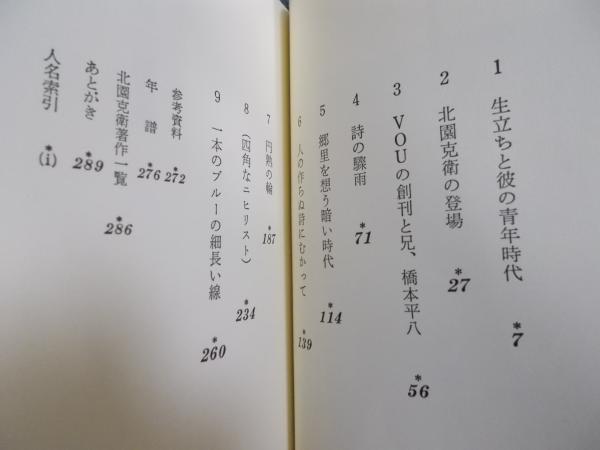 1 生立ちと彼の青年時代 *7
2 北園克衛の登場 *27
3 VOUの創刊と兄、橋本平八 *56
4 詩の驟雨 *71
5 郷里を想う暗い時代 *114
6 人の作らぬ詩にむかって *139
7 円熟の輪 *187
8 (四角なニヒリスト) *234
9 一本のブルーの細長い線 *260
参考資料 *272
年譜 *276
北園克衛著作一覧 *286
あとがき *289
人名索引 *(i)